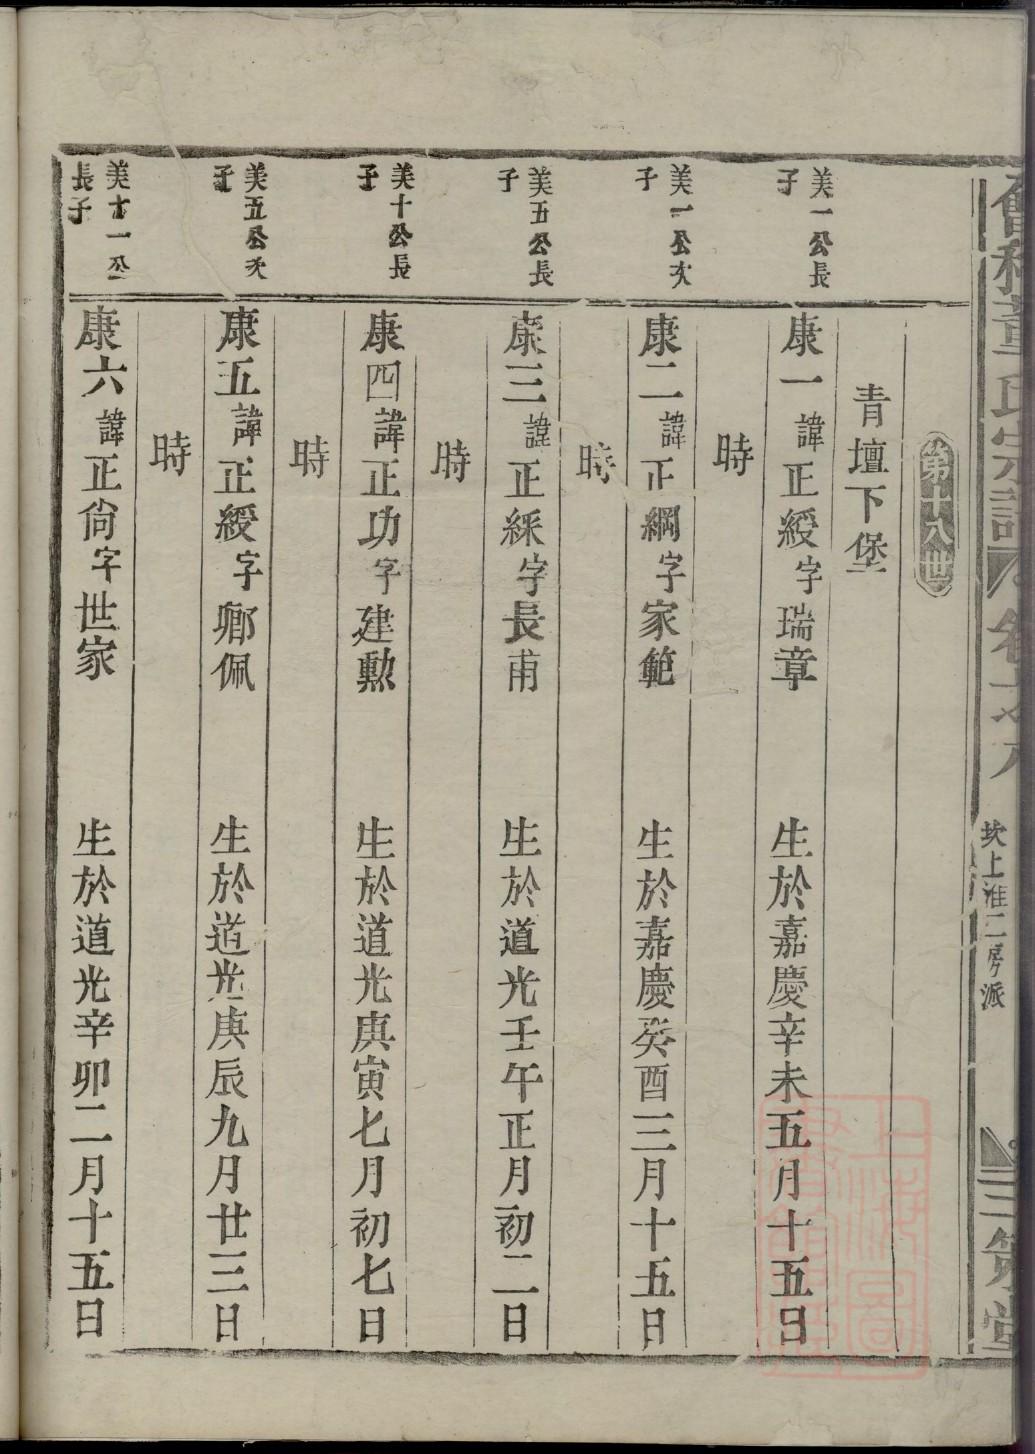 會稽董氏宗譜 卷 坎上淮二房派 三策堂
第十八世
青壇下堡
美一公長子
康一諱正綬字瑞章 生於嘉慶辛未五月十五日
時
美一公次子
康二諱正綱字家範 生於嘉慶癸酉三月十五日
時
美五公長子
康三諱正綵字長甫 生於道光壬午正月初二日
時
美十公長子
康四諱正功字建勲 生於道光庚寅七月初七日
時
美五公次子
康五諱正綬字鄉佩 生於道光庚辰九月廿三日
時
美十一公長子
康六諱正尙字世家 生於道光辛卯二月十五日
上海圖書館藏